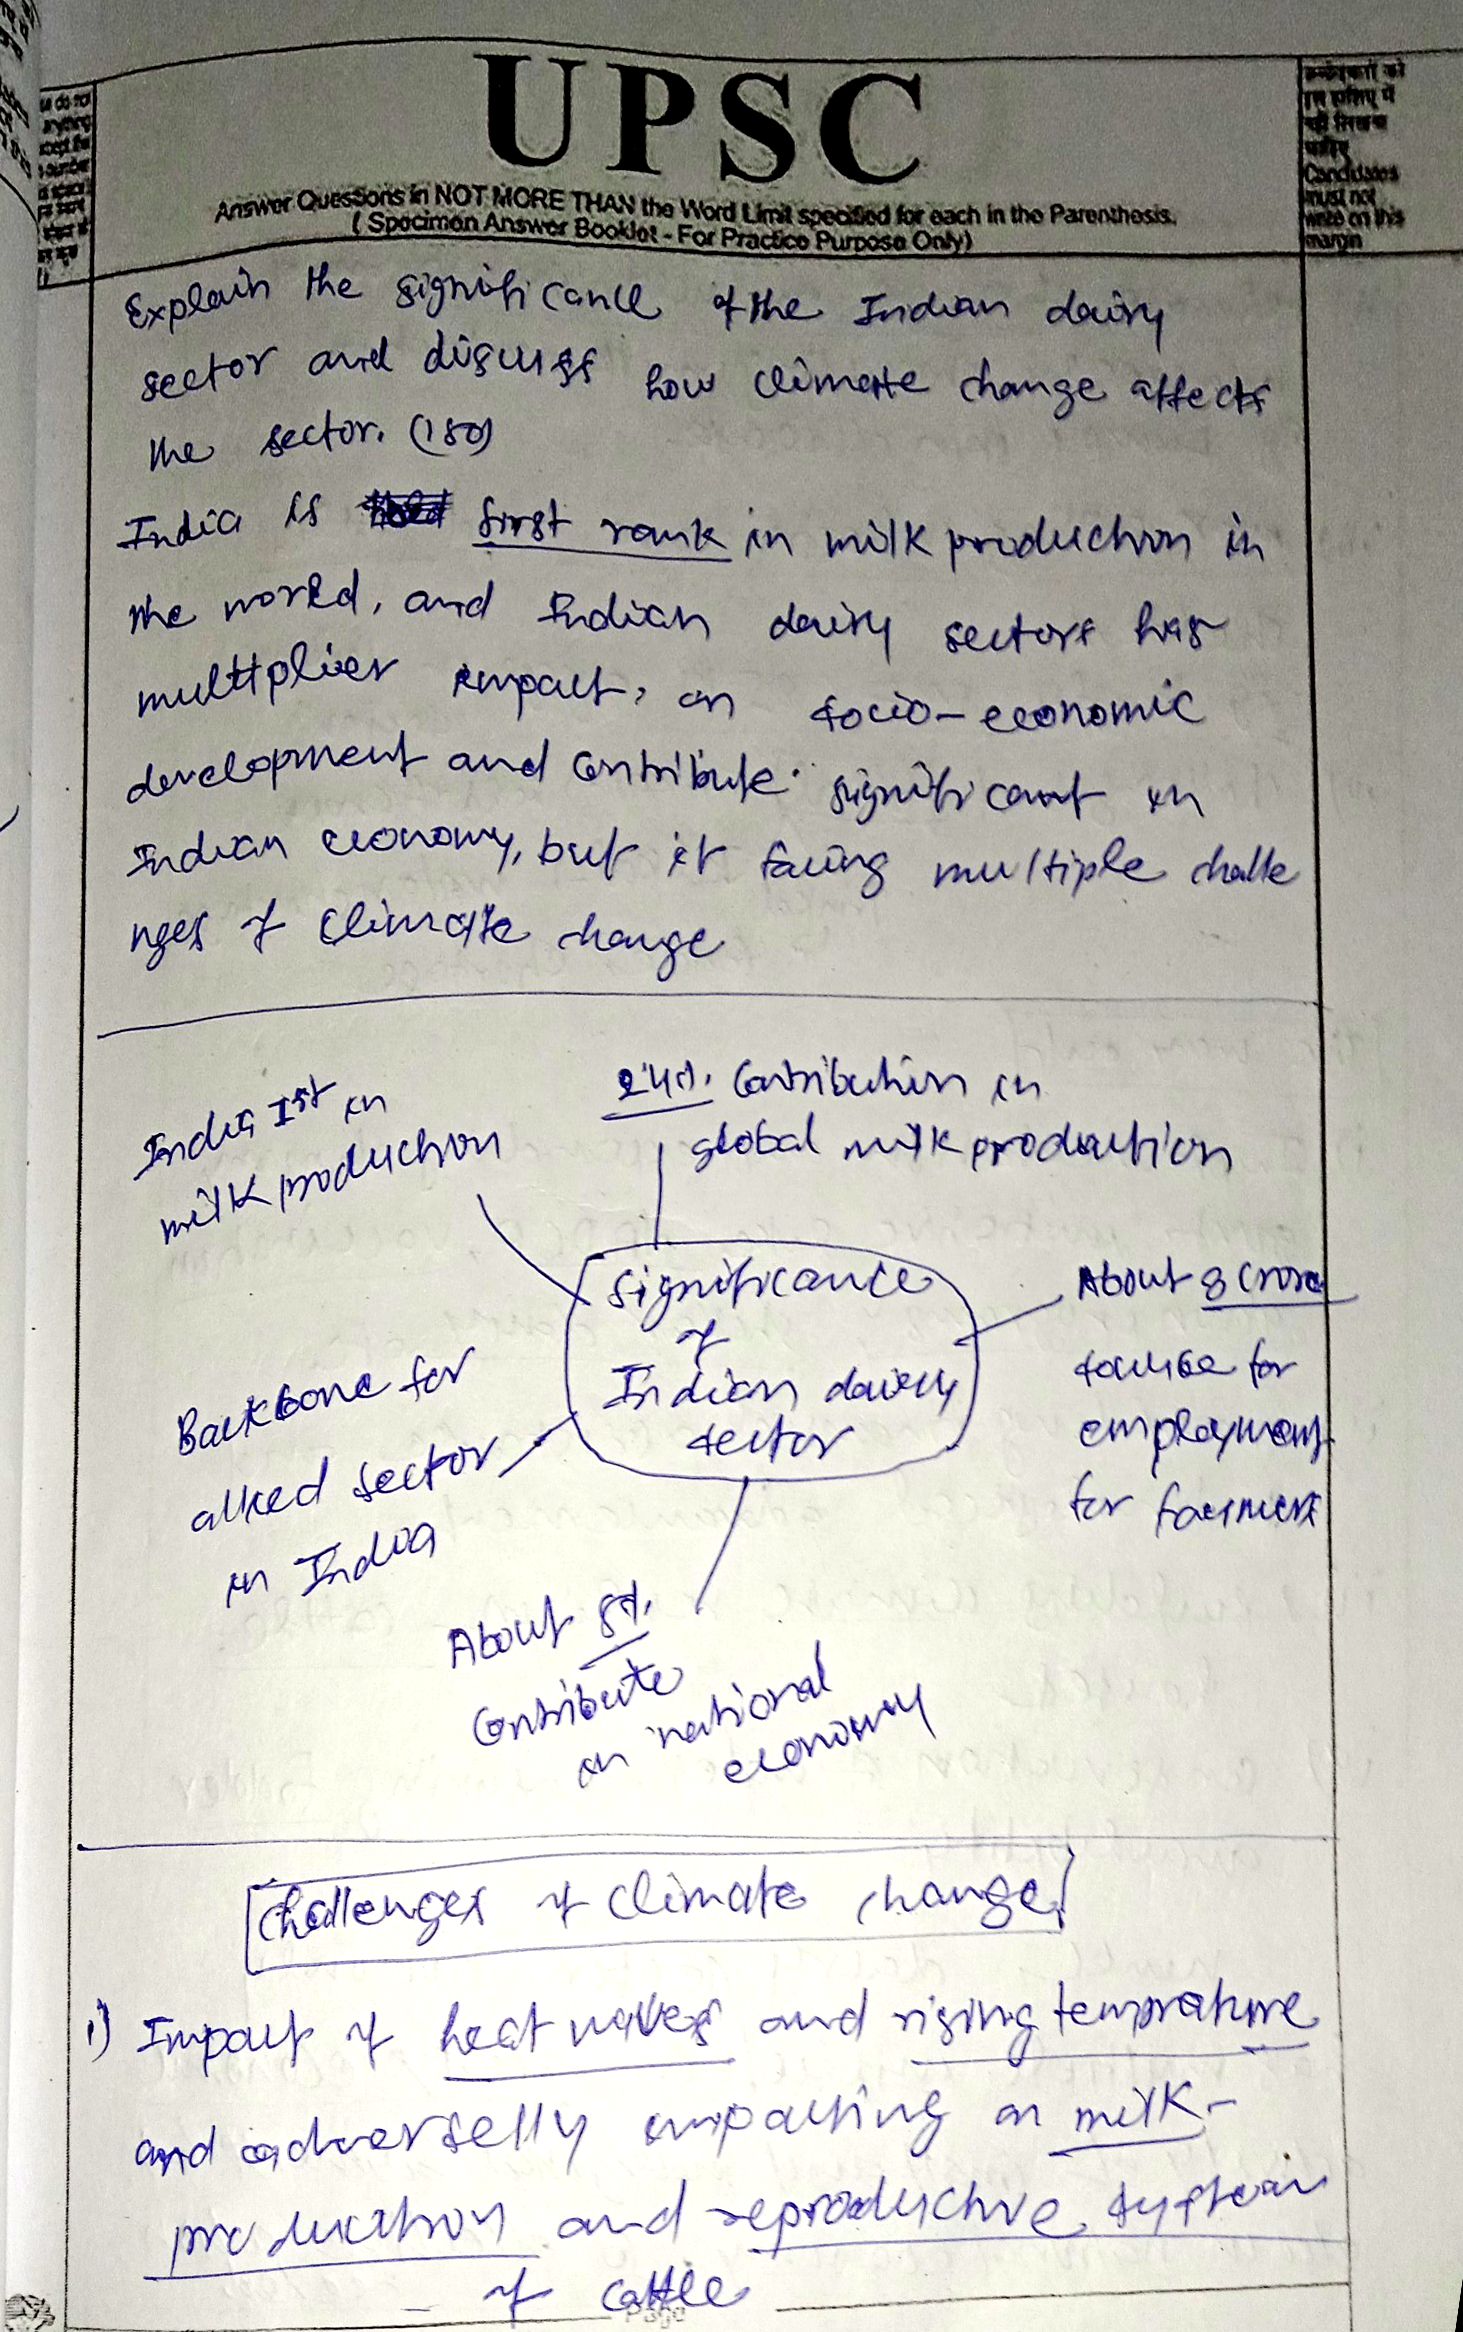 UPSC
Answer Questions in NOT MORE THAN the Word Limit specified for each in the Parenthesis.
( Specimen Answer Booklet - For Practice Purpose Only)
उम्मीदवारों को
इस हाशिए में
नहीं लिखना
चाहिए
Candidates
must not
write on this
margin
Explain the significance of the Indian dairy
sector and discuss how climate change affects
the sector. (150)
India is first rank in milk production in
the world, and Indian dairy sectors has
multiplier impact, on socio-economic
development and contribute significant in
Indian economy, but it facing multiple challe
nges of climate change
India 1st in
milk production
24%. Contribution in
global milk production
Significance
of
Indian dairy
sector
About 8 crore
sourse for
employment
for farmers
Backbone for
allied sector
in India
About 5%.
Contribute
on national
economy
Challenges of climate change
1) Impact of heat waves and rising temprature
and adverselly impacting on milk-
production and reproductive system
of cattle
Page